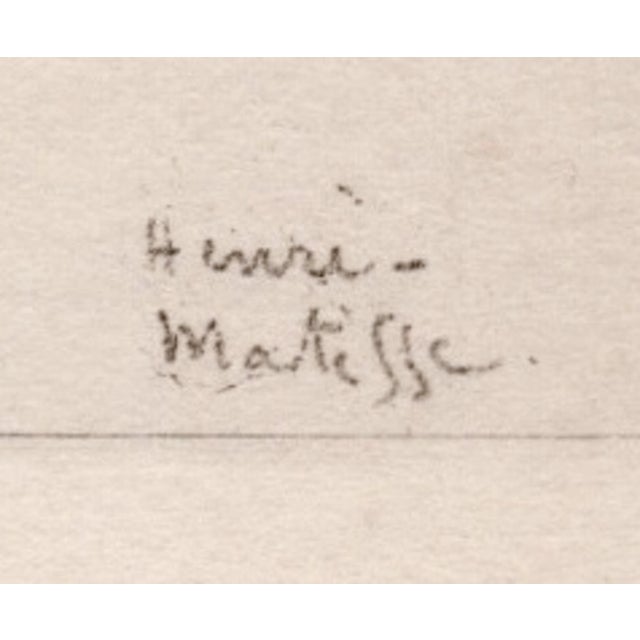 Henri-
Matisse.